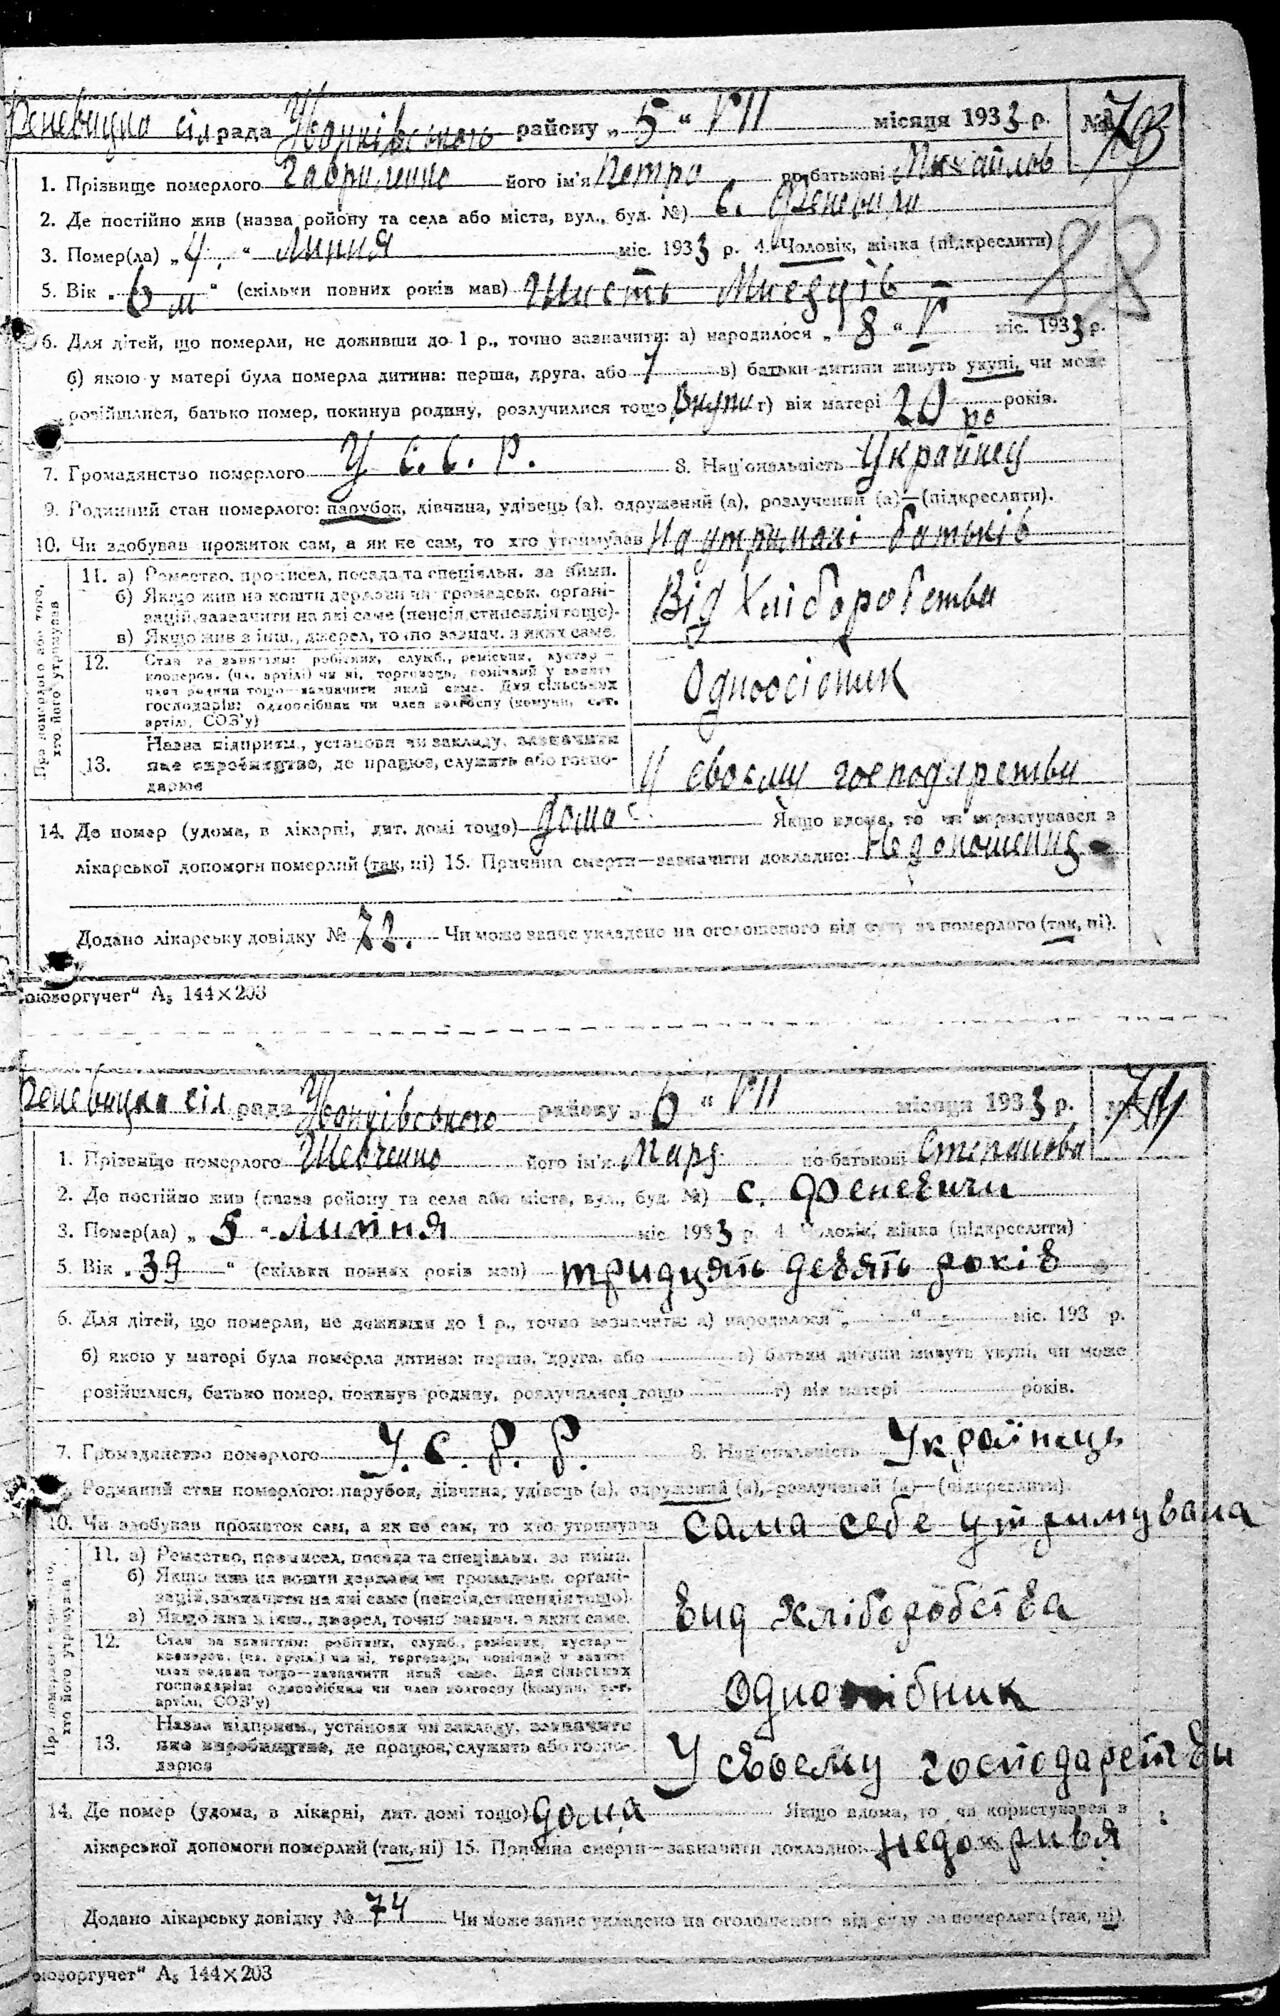 Феневицка сіл рада Іванківського району „ 5 “ VII місяця 1933 р. № 73
1. Прізвище померлого Гавриленко його ім'я Петро по батькові Михайлов
2. Де постійно жив (назва ройону та села або міста, вул., буд. №) с. Феневичи
3. Помер(ла) „ 4 “ Липня міс. 1933 р. 4. Чоловік, жінка (підкреслити)
88
5. Вік „ 6 м “ (скільки повних років мав) Шисть Мисяців
6. Для дітей, що померли, не доживши до 1 р., точно зазначити: а) народилося „ 8 “ V міс. 1933 р.
б) якою у матері була померла дитина: перша, друга, або 1 в) батьки дитини живуть укупі, чи може
розійшлися, батько помер, покинув родину, розлучилися тощо Вкупи г) вік матері 20 ро років.
7. Громадянство померлого У С. С. Р. 8. Національність Українец
9. Родинний стан померлого: парубок, дівчина, удівець (а), одружений (а), розлучений (а)—(підкреслити).
10. Чи здобував прожиток сам, а як не сам, то хто утримував На утримані батьків
Про померлого або того, хто його утримував
11. а) Ремество, промисел, посада та спеціяльн. за ними.
б) Якщо жив на кошти держави чи громадськ. органі-
зацій, зазначити на які саме (пенсія, стипендія тощо).
в) Якщо жив з інш., джерел, точно зазнач. з яких саме.
Від Хліборобства
12. Стан за заняттям: робітник, служб., ремісник, кустар—
кооперов. (чл. артілі) чи ні, торговець, помічний у занят.
член родини тощо—зазначити який саме. Для сільських
господарів: одноосібник чи член колгоспу (комуни, с.-г.
артілі, СОЗ'у)
Одноосібник
13. Назва підприєм., установи чи закладу, зазначити
яке виробництво, де працює, служить або госпо-
дарює
У своєму господарстви
14. Де помер (удома, в лікарні, дит. домі тощо) дома Якщо вдома, то чи користувався з
лікарської допомоги померлий (так, ні) 15. Причина смерти—зазначити докладно: Недоношення
Додано лікарську довідку № 72. Чи може запис укладено на оголошеного від суду за померлого (так, ні).
оюзоргучет“ А5 144×203
Феневицка сіл рада Іванківського району „ 6 “ VII місяця 1933 р. № 74
1. Прізвище померлого Шевченко його ім'я Маря по батькові Степанова
2. Де постійно жив (назва ройону та села або міста, вул., буд. №) с. Феневичи
3. Помер(ла) „ 5 “ липня міс. 1933 р. 4. Чоловік, жінка (підкреслити)
5. Вік „ 39 “ (скільки повних років мав) тридцять девять років
6. Для дітей, що померли, не доживши до 1 р., точно зазначити: а) народилося „ “ міс. 193 р.
б) якою у матері була померла дитина: перша, друга, або в) батьки дитини живуть укупі, чи може
розійшлися, батько помер, покинув родину, розлучилися тощо г) вік матері років.
7. Громадянство померлого У. С. Р. Р. 8. Національність Українець
Родинний стан померлого: парубок, дівчина, удівець (а), одружений (а), розлучений (а)—(підкреслити).
10. Чи здобував прожиток сам, а як не сам, то хто утримував сама себе утримувала
Про померлого або того, хто його утримував
11. а) Ремество, промисел, посада та спеціяльн. за ними.
б) Якщо жив на кошти держави чи громадськ. органі-
зацій, зазначити на які саме (пенсія, стипендія тощо).
в) Якщо жив з інш., джерел, точно зазнач. з яких саме.
вид хліборобства
12. Стан за заняттям: робітник, служб., ремісник, кустар—
кооперов. (чл. артілі) чи ні, торговець, помічний у занят.
член родини тощо—зазначити який саме. Для сільських
господарів: одноосібник чи член колгоспу (комуни, с.-г.
артілі, СОЗ'у)
одноосібник
13. Назва підприєм., установи чи закладу, зазначити
яке виробництво, де працює, служить або госпо-
дарює
У своєму господарстви
14. Де помер (удома, в лікарні, дит. домі тощо) дома Якщо вдома, то чи користувався з
лікарської допомоги померлий (так, ні) 15. Причина смерти—зазначити докладно: недокривя
Додано лікарську довідку № 74 Чи може запис укладено на оголошеного від суду за померлого (так, ні).
оюзоргучет“ А5 144×203